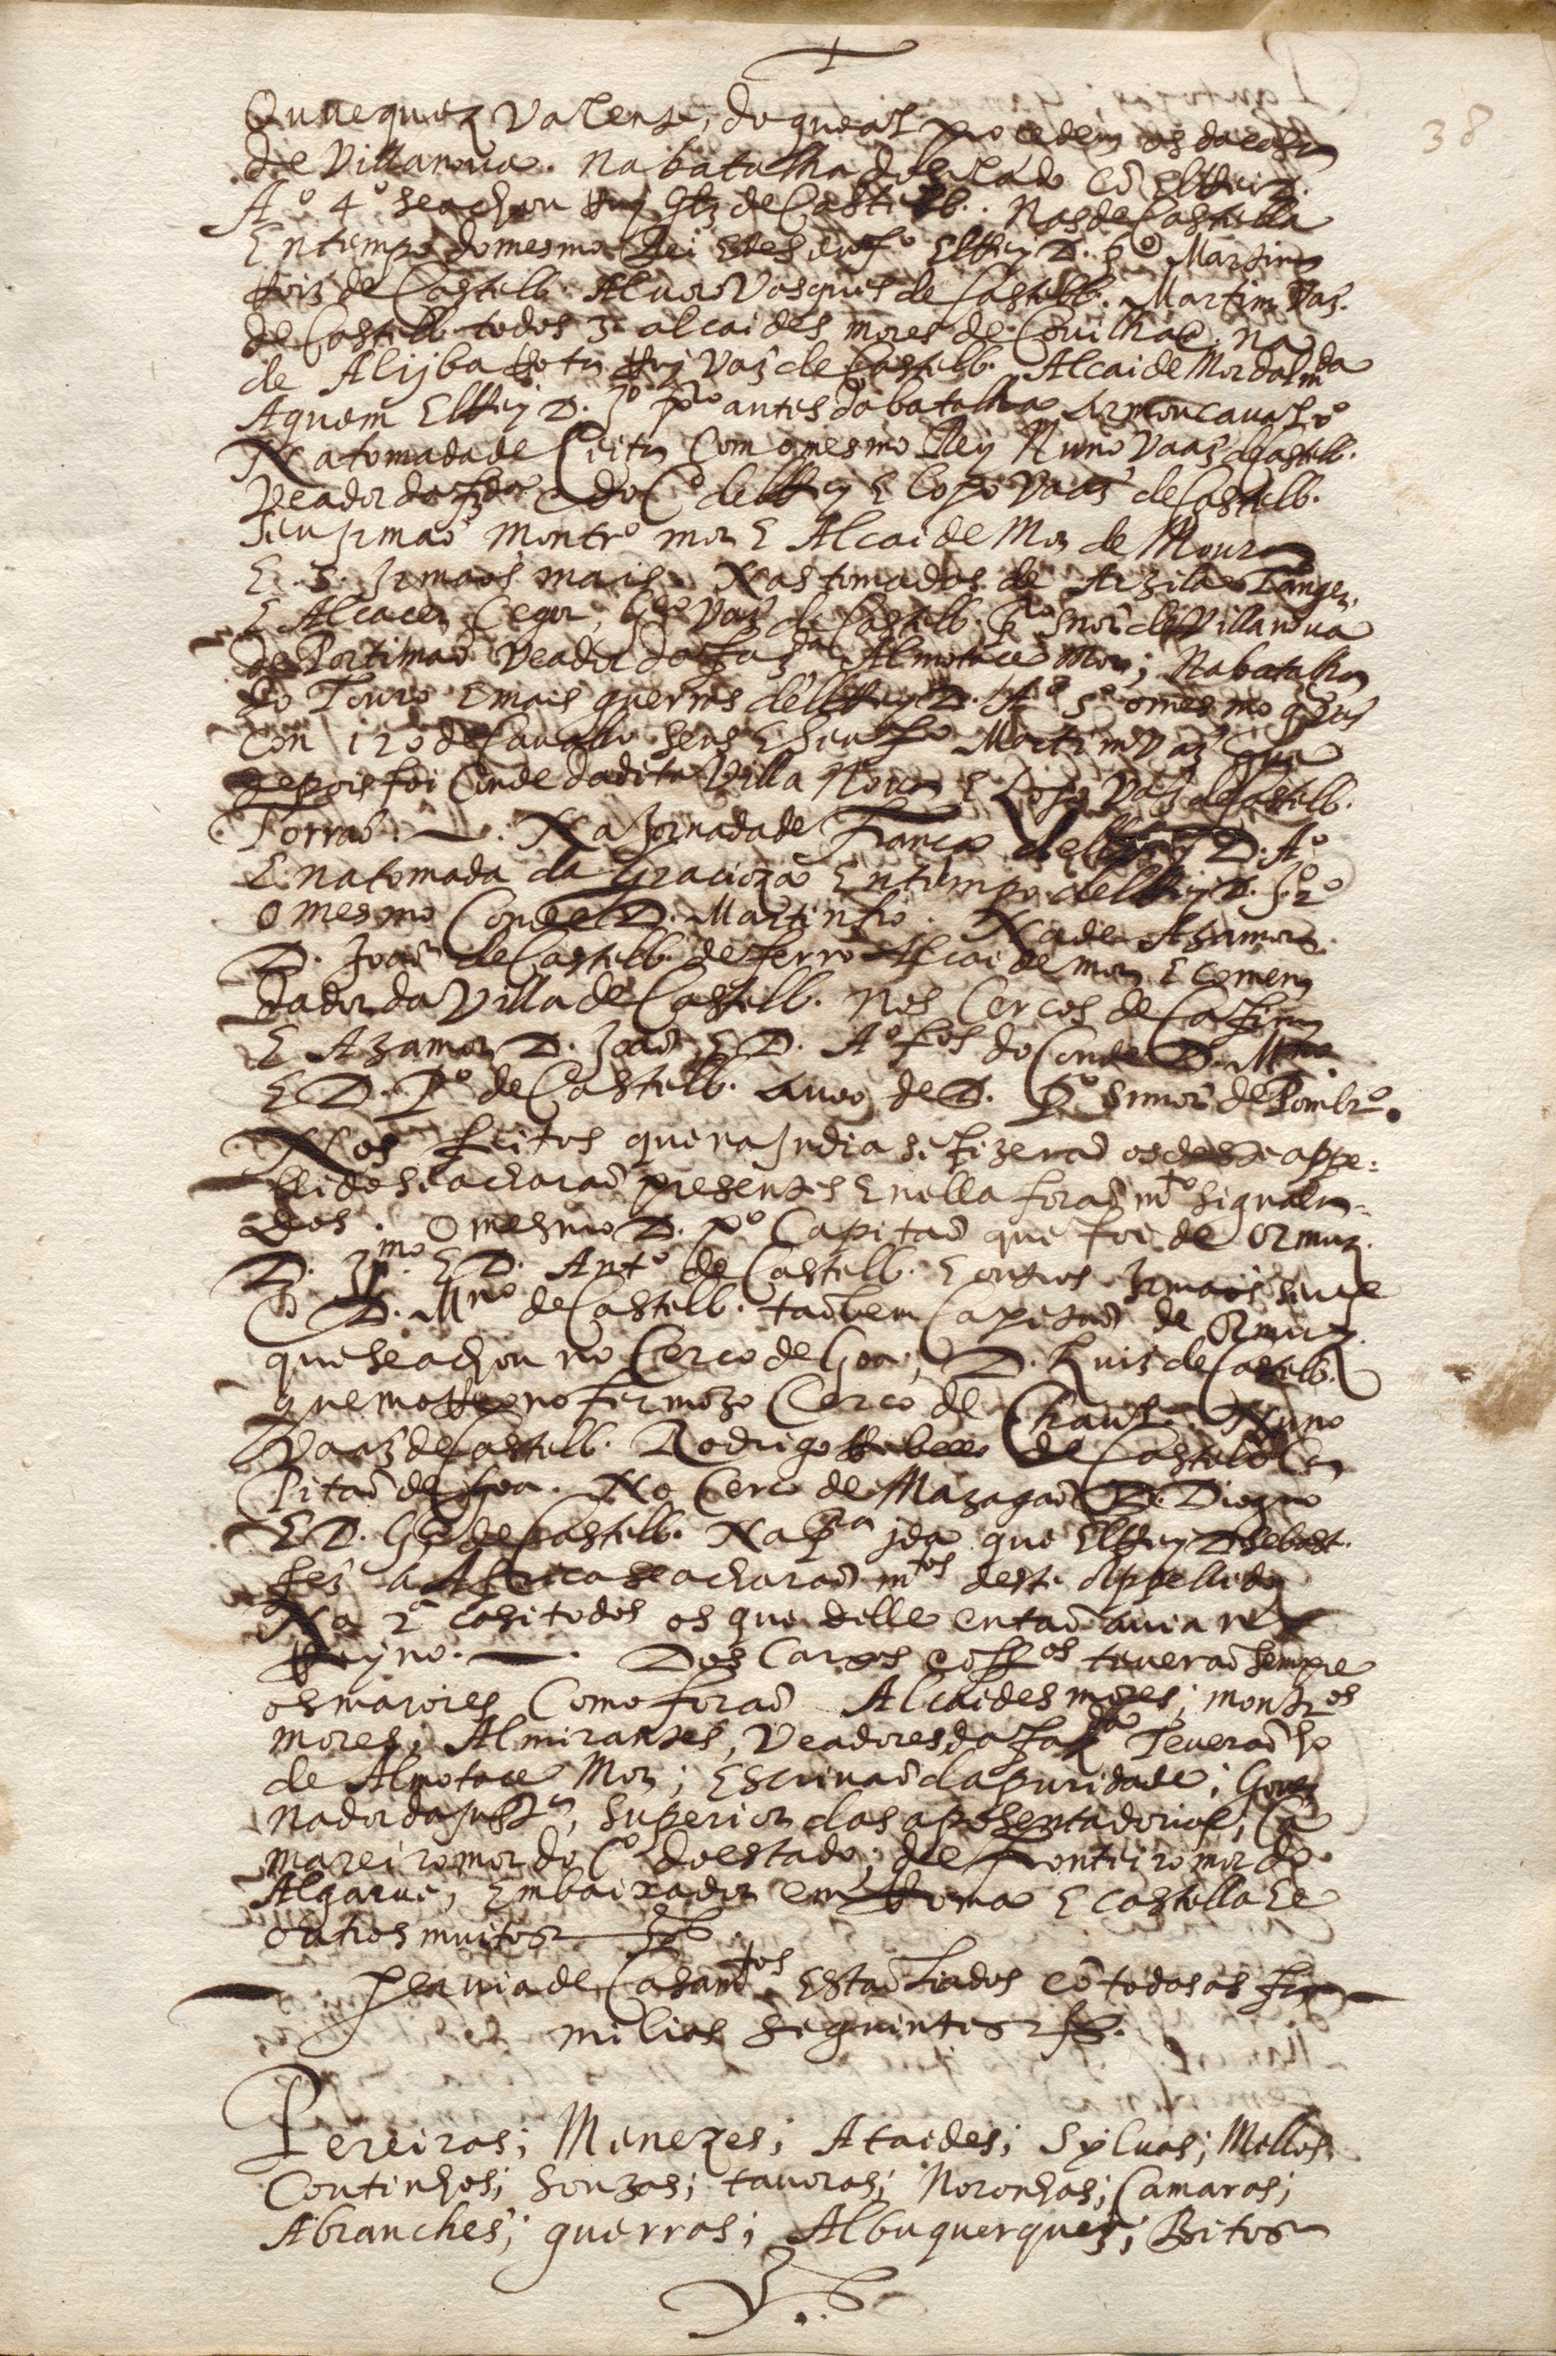 38
Ouuequez Valente, do qual procedem os da casa
de Villanoua. Na batalha do Salado cõ elRei D.
A.º 4.º se achou Ruy Glz de Castellb. Nas de Castella
Em tempo do mesmo Rei e de seu f.º ElRey D. P.º Martim
de Castellb. Aluaro Vasques de Castellb. Martim Vaz.
de Castellb. todos 3 alcaides mores de Couilhaã, na
de Alijbarrota Ruy Vaz de Castellb. Alcaide Mor
Aquem ElRey D. J.º antes da batalha armou caual.ro
Na tomada de Ceita com o mesmo Rey Nuno Vaaz de Castell.
Veador da fz.da e do C.º delRey E lopo Vaaz de Castellb.
Seu Irmaõ Montr.º mor E Alcaide Mor de Moura
E. 5. Irmaos mais. Nas tomadas de Arzila Tanger,
E Alcacer Ceger, G.lo Vaz de Castellb. p.ro snor de Villanoua
de Portimaõ Veador da faz.da Almotace Mor; Na batalha
do Touro E mais guerras delRey D. A.º 5.º o mesmo
Con 120 de Cauallo seus E seu f.º Martim Vaz que
depois foi Conde da dita Villa Noua E Lopo Vaz de Castellb.
Torraõ. —. Na Jornada de França delRey D. A.º
E na tomada da Gracioza Em tempo delRey D. J.º 2.º
O mesmo Conde D. Martinho. Na de Azamor.
D. Joaõ de Castellb. de ferro Alcaide mor E comen
dador da Villa de Castellb. Nos Cercos de Cafim
E Azamor D. Joaõ, E D. A.º f.os do Conde D. M.no
E D. P.º de Castellb. auo de D. P.º snnor de Pombr.º.
Nos feitos que na India se fizeraõ os deste appe:
llido se acharaõ presentes E nella foraõ m.to signala-
dos. O mesmo D. P.º Capitaõ que foi de Ormuz.
D. Jmo E D. Ant.º de Castellb. E outros Irmaos seus e
D. M.no de Castellb. taõbem Capitaõ de Ormuz.
que se achou no Cerco de Goa; D. Luis de Castellb.
que morreo no fermozo Cerco de Chaul. Nuno
Vaaz de Castellb. Rodrigo Rebello de Castelb Ca
Pitaõ de Goa. No Cerco de Mazagaõ D. Diogo
E D. de Castellb. Na p.ra jda que ElRey D. Sebast.
fez a Africa se acharaõ m.tos deste Appellido
Na 2.ª casi todos os que delle entaõ auia no
Reyno. —. Dos Cargos e off.os tiueraõ sempre
os maiores Como foraõ Alcaides mores; montr.os
mores, Almirantes, Veadores da faz.da Teueraõ ho
de Almotace Mor; Escriuaõ da puridade; Gouer
Nador da just.ª, Superior das aposentadorias; Ca
mareiro mor do C.º do estado; de fronteiro mor do
Algarue, Embaixador em Roma E Castella E e
outros muitos
Per via de Casam.tos Estaõ liados cõ todas as fa
milias seguintes
Pereiras; Menezes; Ataides; Syluas; Mellos
Coutinhos; Souzas; tauoras; Noronhas; Camaras;
Abranches; guerras; Albuquerques; Britos